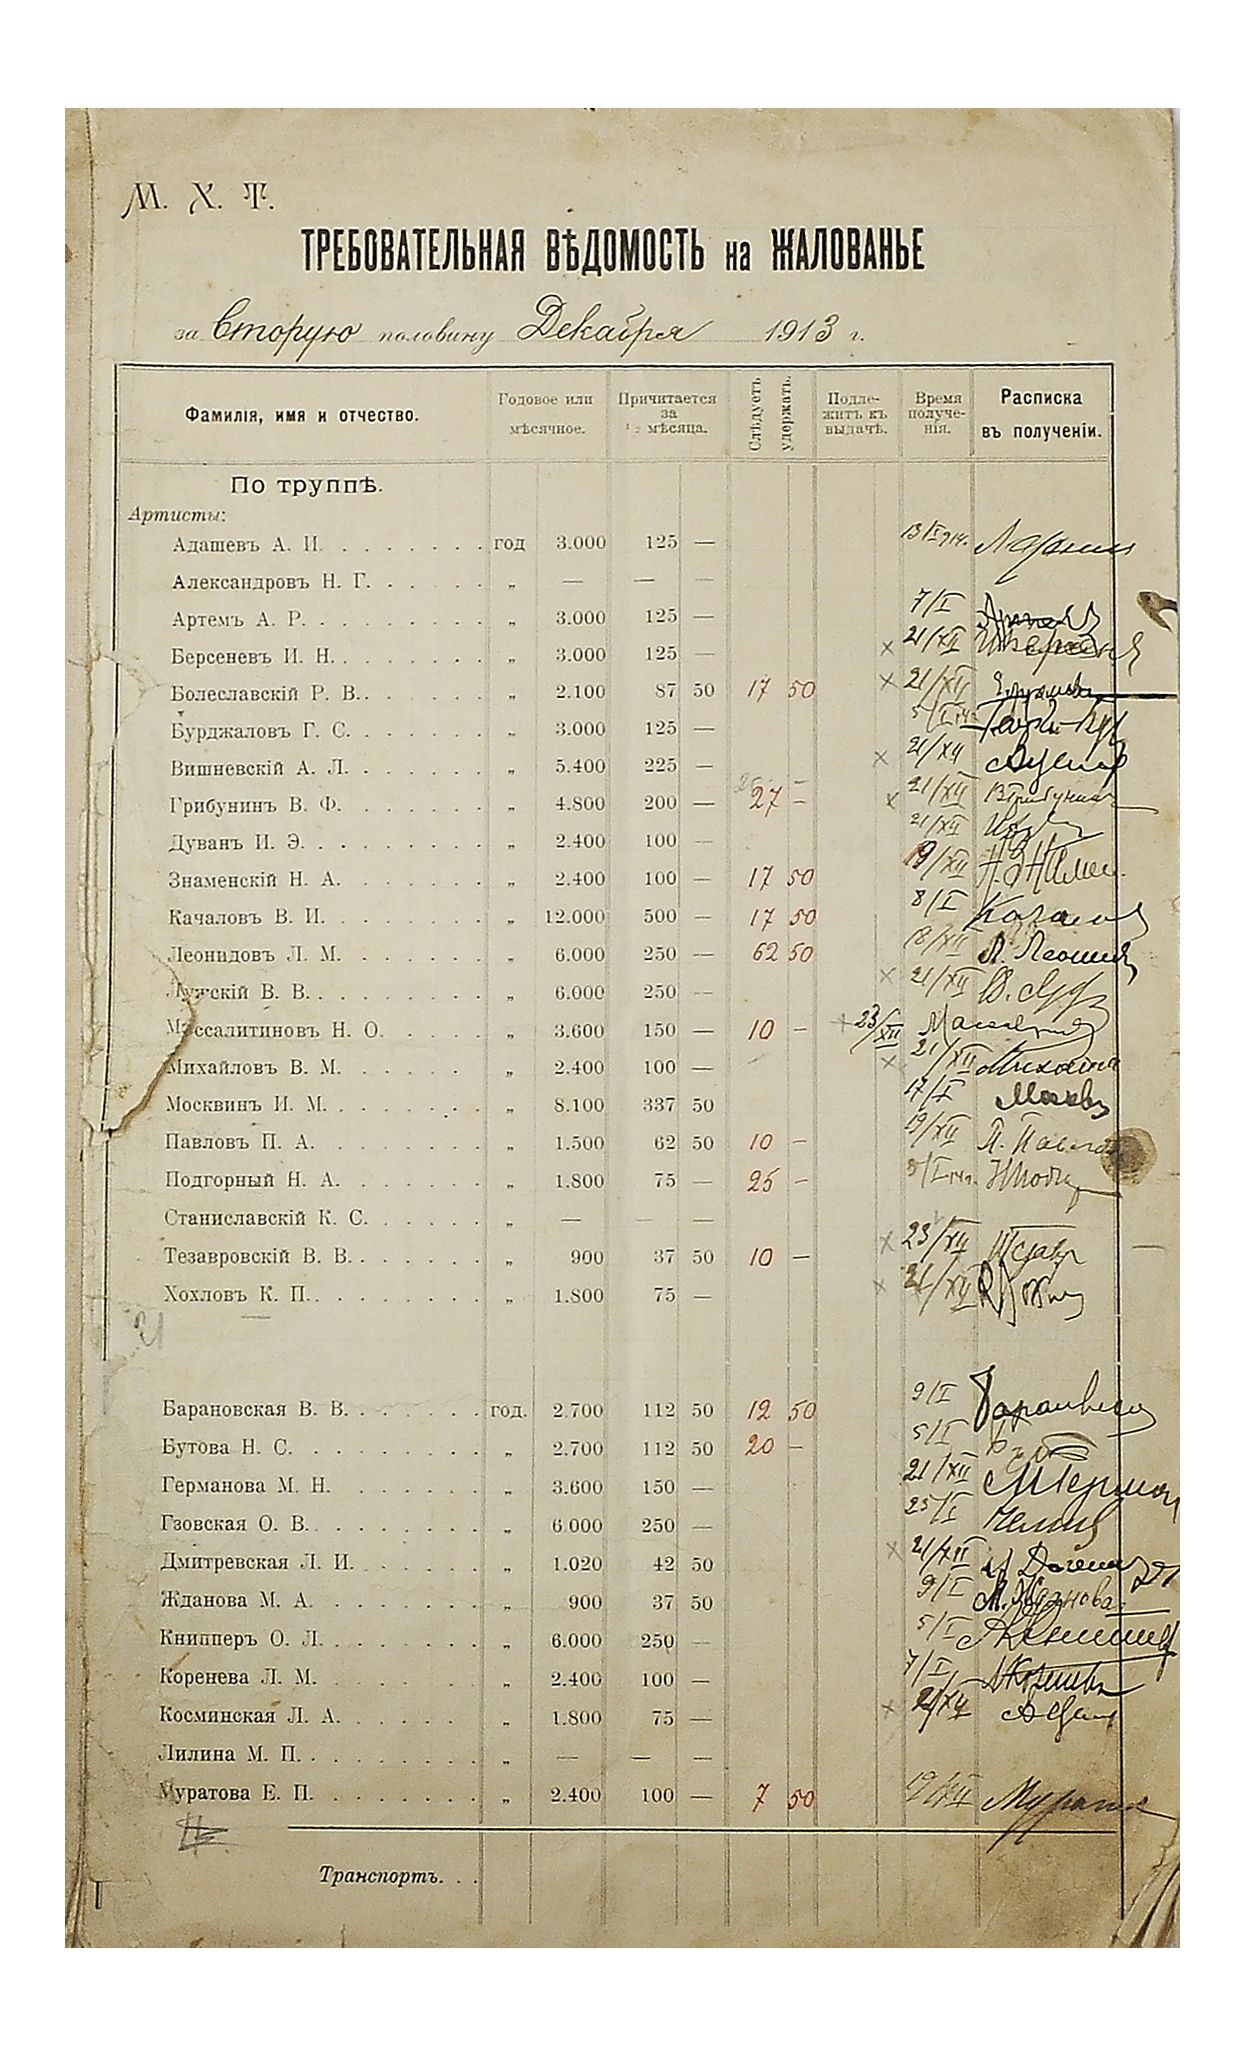 М. Х. Т.
ТРЕБОВАТЕЛЬНАЯ ВѢДОМОСТЬ на ЖАЛОВАНЬЕ
за Вторую половину Декабря 1913 г.
Фамилія, имя и отчество. Годовое или мѣсячное. Причитается за ½ мѣсяца. Слѣдуетъ удержать. Подлежитъ къ выдачѣ. Время полученія. Расписка въ полученіи.
По труппѣ.
Артисты:
Адашевъ А. И. год 3.000 125 — 13/I 914.
Александровъ Н. Г. „ — — —
Артемъ А. Р. „ 3.000 125 — 7/I
Берсеневъ И. Н. „ 3.000 125 — × 21/XII
Болеславскій Р. В. „ 2.100 87 50 17 50 × 21/XII
Бурджаловъ Г. С. „ 3.000 125 — 5/I
Вишневскій А. Л. „ 5.400 225 — × 21/XII
Грибунинъ В. Ф. „ 4.800 200 — 27 — × 21/XII В Грибунинъ
Дуванъ И. Э. „ 2.400 100 — 21/XII
Знаменскій Н. А. „ 2.400 100 — 17 50 19/XII
Качаловъ В. И. „ 12.000 500 — 17 50 8/I Качаловъ
Леонидовъ Л. М. „ 6.000 250 — 62 50 18/XII Л. Леонидовъ
Лужскій В. В. „ 6.000 250 — × 21/XII
Массалитиновъ Н. О. „ 3.600 150 — 10 — × 23/XII
Михайловъ В. М. „ 2.400 100 — × 21/XII
Москвинъ И. М. „ 8.100 337 50 17/I Москвинъ
Павловъ П. А. „ 1.500 62 50 10 — 19/XII П. Павловъ
Подгорный Н. А. „ 1.800 75 — 25 —
Станиславскій К. С. „ — — —
Тезавровскій В. В. „ 900 37 50 10 — × 23/XII
Хохловъ К. П. „ 1.800 75 — × 21/XII
21
Барановская В. В. год. 2.700 112 50 12 50 9/I Барановская
Бутова Н. С. „ 2.700 112 50 20 — 5/I
Германова М. Н. „ 3.600 150 — 21/XII
Гзовская О. В. „ 6.000 250 — 25/I
Дмитревская Л. И. „ 1.020 42 50 × 21/XII
Жданова М. А. „ 900 37 50 9/I М. Жданова
Книпперъ О. Л. „ 6.000 250 — 5/I
Коренева Л. М. „ 2.400 100 — 7/I
Косминская Л. А. „ 1.800 75 — × 21/XII
Лилина М. П. „ — — —
Муратова Е. П. „ 2.400 100 — 7 50 19/XII Муратова
Транспортъ.